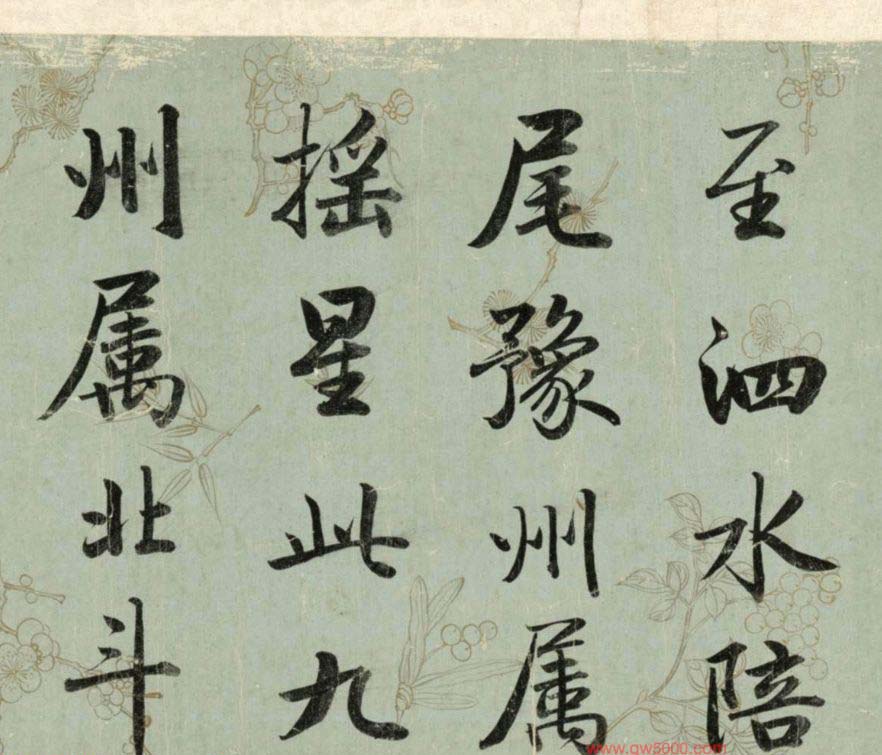 至泗水陪
尾豫州属
摇星此九
州属北斗
www.gw5000.com